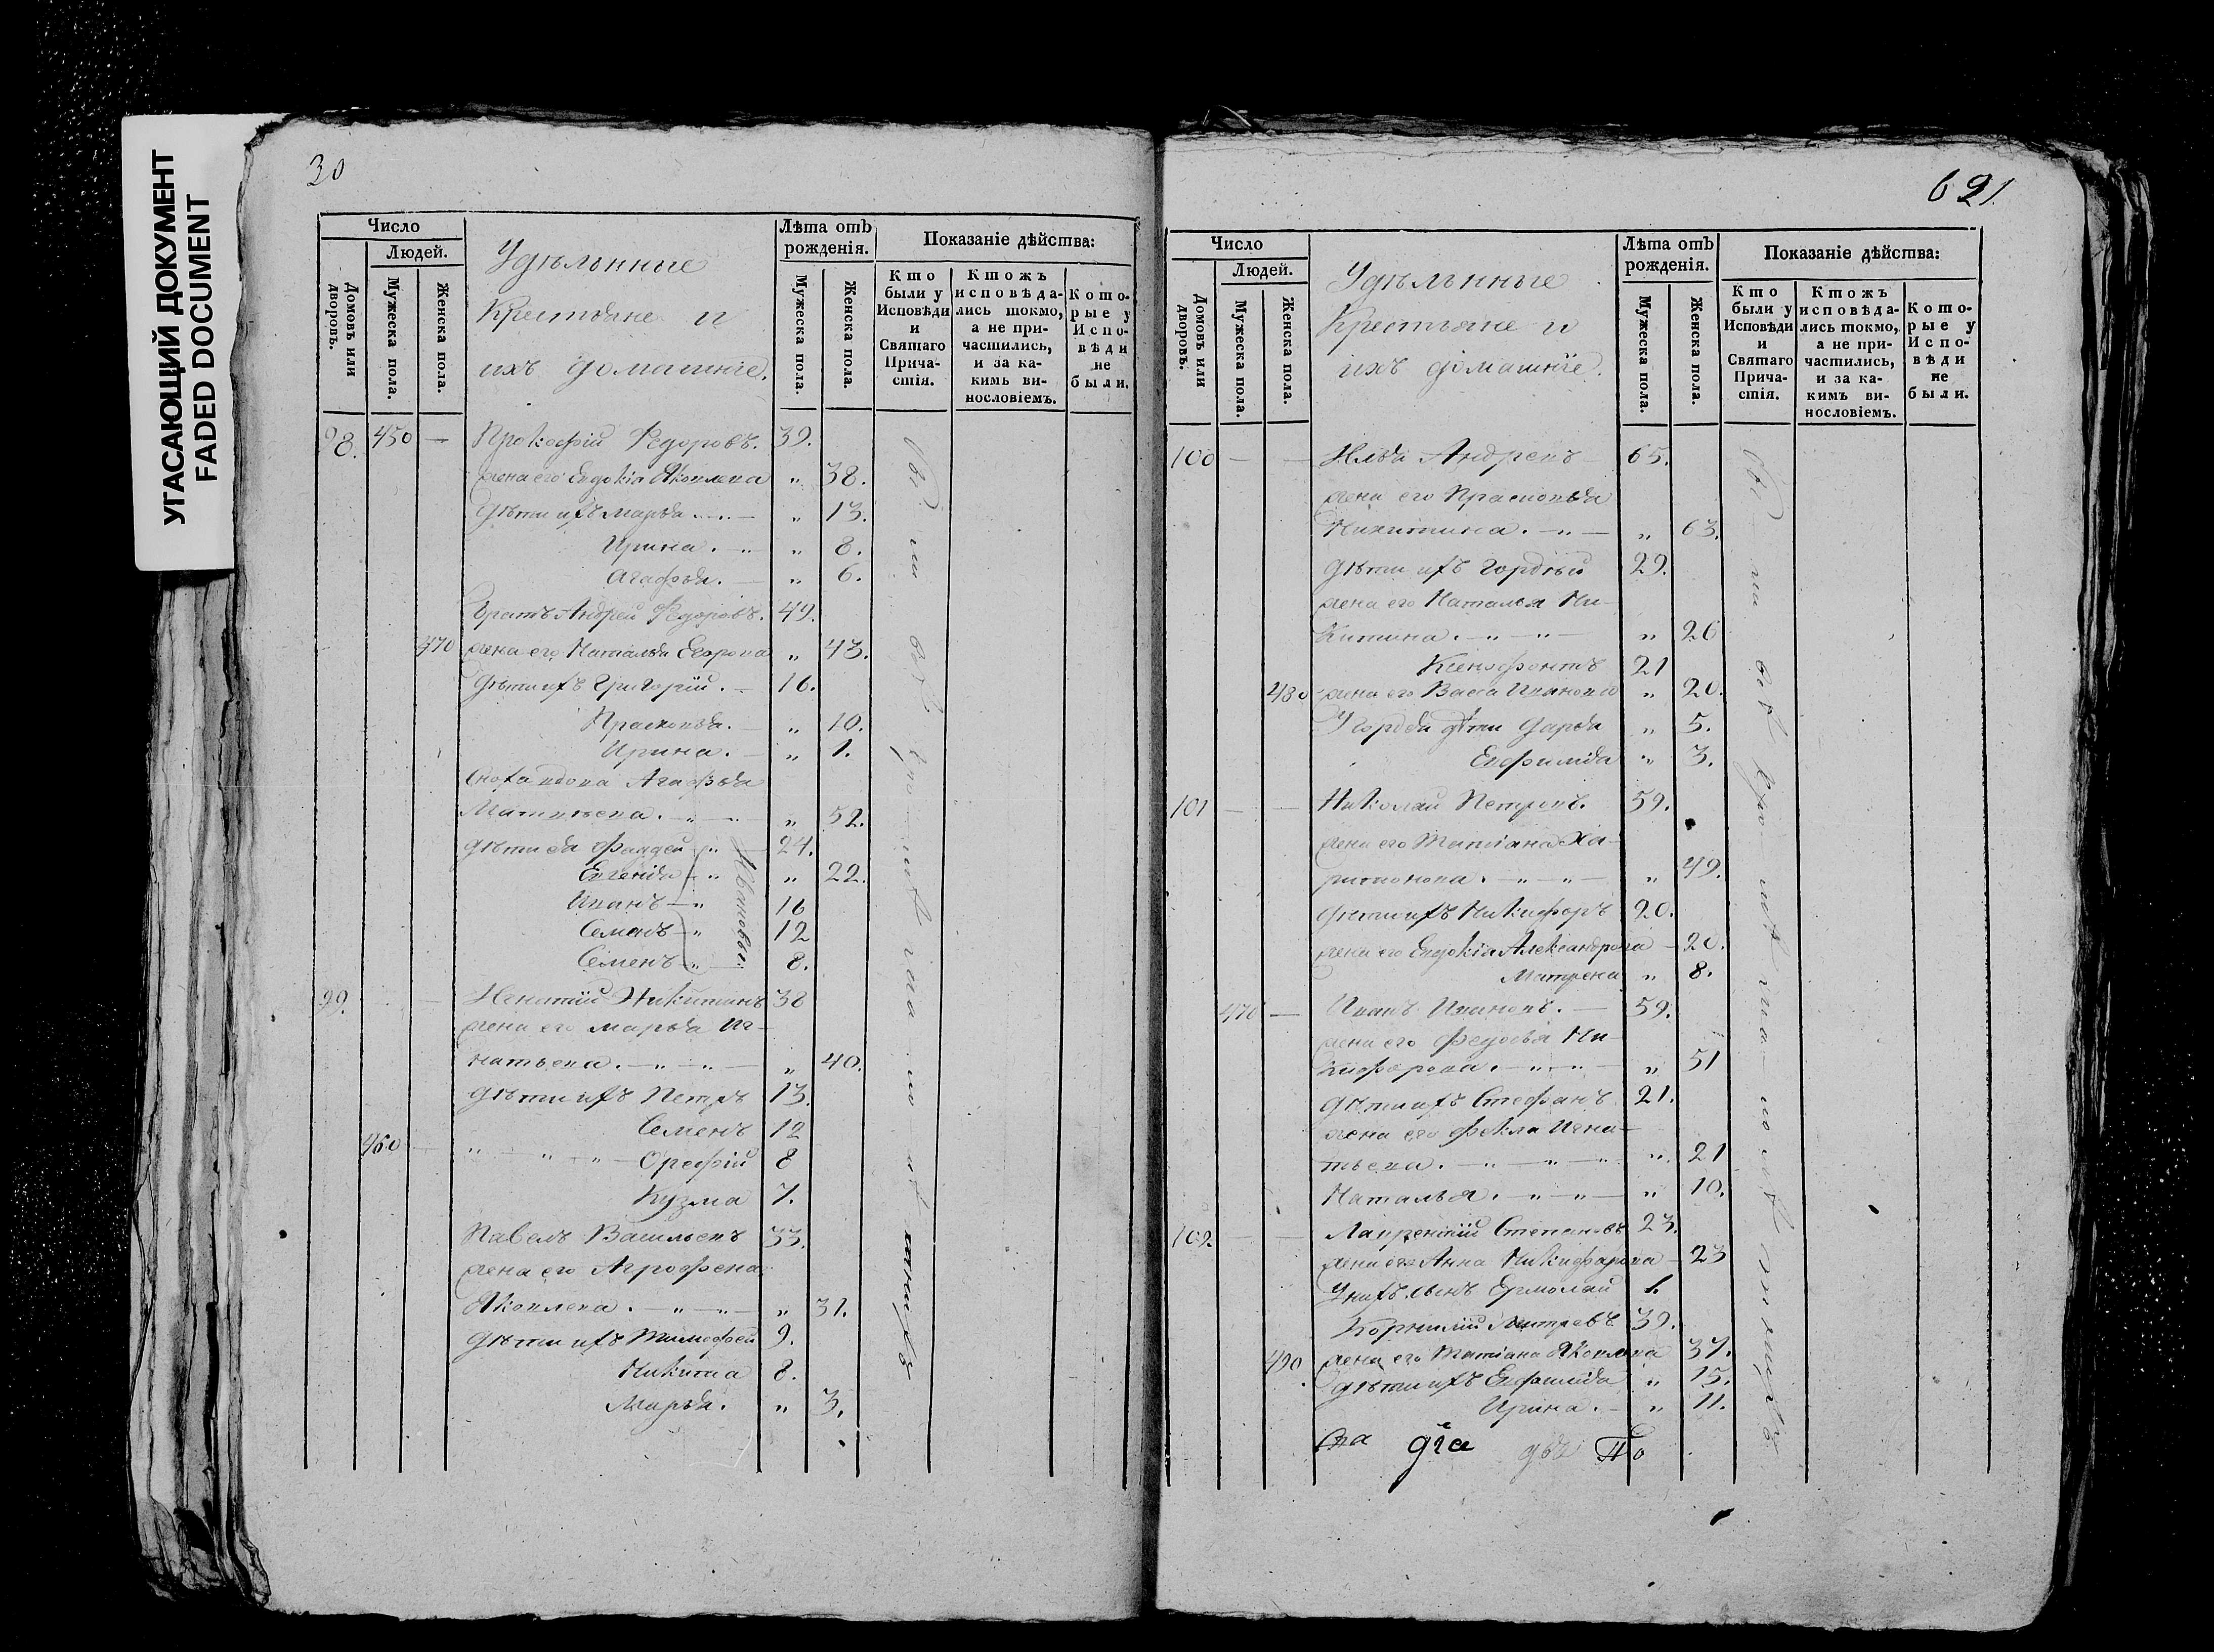 УГАСАЮЩИЙ ДОКУМЕНТ
FADED DOCUMENT
30
Число
Людей.
Домовъ или дворовъ.
Мужеска пола.
Женска пола.
Удѣльныые
Крестьяне и
ихъ домашніе.
Лѣта отъ рожденія.
Мужеска пола.
Женска пола.
Показаніе дѣйства:
Кто были у Исповѣди и Святаго Причастія.
Ктожъ исповѣдались токмо, а не причастились, и за какимъ винословіемъ.
Которые у Исповѣди не были.
98. 450 — Прокофій Федоровъ. 39.
жена его Евдокіа Яковлева „ 38.
дѣти ихъ Марья „ 13.
Ирина. „ 8.
Агафья. „ 6.
Братъ Андрей Федоровъ. 49.
470 жена его Наталья Егорова „ 43.
дѣти ихъ Григорій. 16.
Прасковья. „ 10.
Ирина. „ 1.
Сноха вдова Агафья
Матвѣева. „ 52.
дѣти ея Фаддей 24.
Евгенія „ 22.
Иванъ 16
Семенъ 12
Семенъ 8.
Ивановы
99. Игнатій Никитинъ 38
жена его Марья Иг-
натьева. „ 40.
дѣти ихъ Петръ 13.
Семенъ 12
460 Орефій 8
Кузма 7.
Павелъ Васильевъ 33.
жена его Агрофена
Яковлева. „ 31.
дѣти ихъ Тимофей 9.
Никита 8.
Марья. „ 3.
621
Число
Людей.
Домовъ или дворовъ.
Мужеска пола.
Женска пола.
Удѣльныые
Крестьяне и
ихъ домашнїе.
Лѣта отъ рожденія.
Мужеска пола.
Женска пола.
Показаніе дѣйства:
Кто были у Исповѣди и Святаго Причастія.
Ктожъ исповѣдались токмо, а не причастились, и за какимъ винословіемъ.
Которые у Исповѣди не были.
100 — — Илья Андреевъ 65.
жена его Прасковья
Никитина. „ 63.
дѣти ихъ Гордѣй 29.
жена его Наталья Ни-
китина. „ 26
Ксенофонтъ 21
480 жена его Васса Иванова „ 20.
У Гордѣя дѣти Дарья „ 5.
Евфимія „ 3.
101 — — Николай Петровъ. 59.
жена его Татіана Ха-
ритонова. „ 49.
дѣти ихъ Никифоръ 20.
жена его Евдокіа Александрова — 20.
Матрена „ 8.
470 — Иванъ Ивановъ. — 59.
жена его Федосья Ни-
кифорова. „ 51
дѣти ихъ Стефанъ 21.
жена его Фекла Игна-
тьева. „ 21
Наталья. „ 10.
102. — — Лаврентій Степановъ 23.
жена его Анна Никифорова — 23
У нихъ сынъ Ермолай 1.
Корнилій 39.
490 жена его Татіана Яковлева 37.
дѣти ихъ Евфимія „ 15.
Ирина. — „ 11.